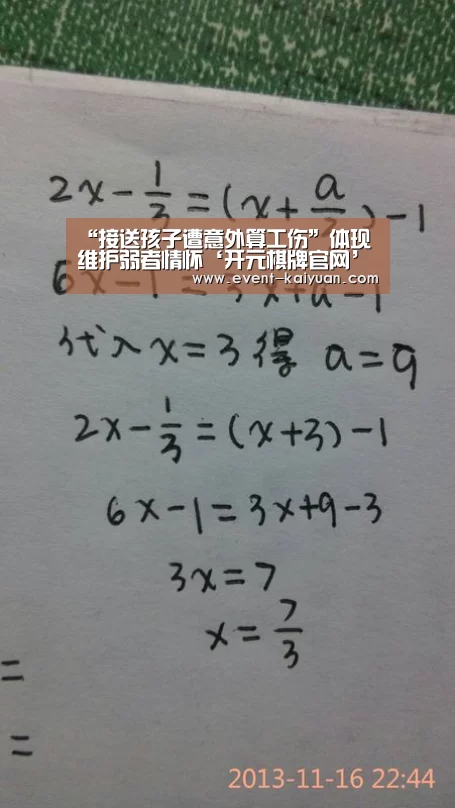 2x - 1/3 = (x + a/3) - 1
“接送孩子遭意外算工伤”体现
维护弱者情怀‘开元棋牌官网’
www.event-kaiyuan.com
6x - 1 = 3x + a - 1
代入 x = 3 得 a = 9
2x - 1/3 = (x + 3) - 1
6x - 1 = 3x + 9 - 3
3x = 7
x = 7/3
=
=
2013-11-16 22:44